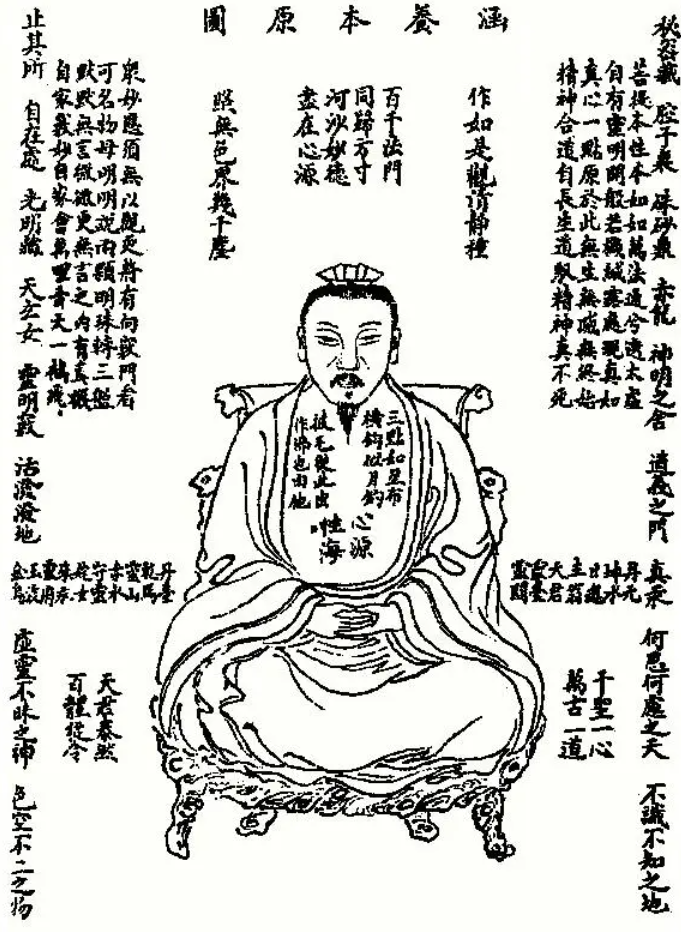 涵養本原圖
秘密藏 腔子裏 硃砂鼎 赤龍 神明之舍 道義之門 真汞 何思何慮之天 不識不知之地
菩提本性本如如萬法通兮透太虛
自有靈明開般若機緘露處現真如
真心一點原於此無生無滅無終始
精神合道自長生道馭精神真不死
作如是觀清靜種
百千法門
同歸方寸
河沙妙德
盡在心源
照無色界幾千塵
眾妙懸須無以觀更將有向竅門看
可名物母明明說兩顆明珠轉三盤
默默無言微微更無言之內有真機
自家義妙自家會萬里青天一鶴飛
止其所 自在處 光明藏 天玄女 靈明竅 活潑潑地 虛靈不昧之神 色空不二之物
三點如星布
橫鈎似月鈎
披毛從此出
作佛也由他
心源
性海
丹元
坤水
主翁
天君
靈臺
靈關
丹臺
乾馬
靈山
赤水
守靈
姹女
靈府
玉液
金烏
千聖一心
萬古一道
天君泰然
百體從令